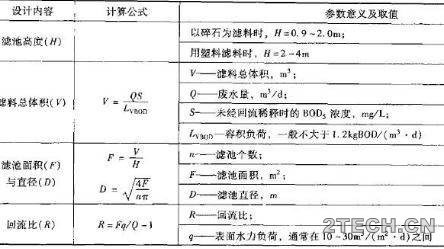 设计内容 计算公式 参数意义及取值
滤池高度(H) 以碎石为滤料时，H=0.9~2.0m；
用塑料滤料时，H=2~4m
滤料总体积(V) V = QS/L_VBOD V——滤料总体积，m³；
Q——废水量，m³/d；
S——未经回流稀释时的BOD₅浓度，mg/L；
L_VBOD——容积负荷，一般不大于1.2kgBOD/(m³·d)
滤池面积(F)与直径(D) F = V/H n——滤池个数；
F——滤池面积，m²；
D = √(4F/nπ) D——滤池直径，m
回流比(R) R=Fq/Q-1 R——回流比；
q——表面水力负荷，通常在10~30m³/(m²·d)之间
2TECH.CN